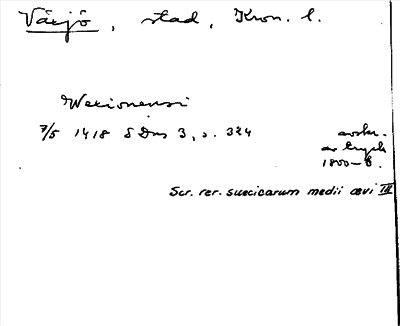 Växjö, stad, Kron. l.
Wexionensi
7/5 1418 SDns 3, s. 324
avskr.
av tryck
1800-t.
Scr. rer. suecicarum medii ævi III